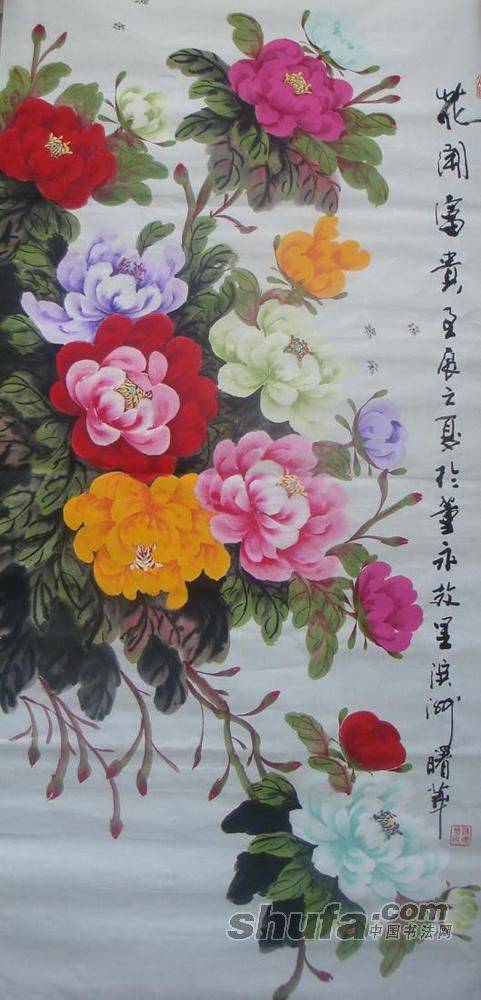 花開富貴壬辰之夏於董永故里滨州曙華
shufa.com
中国书法网